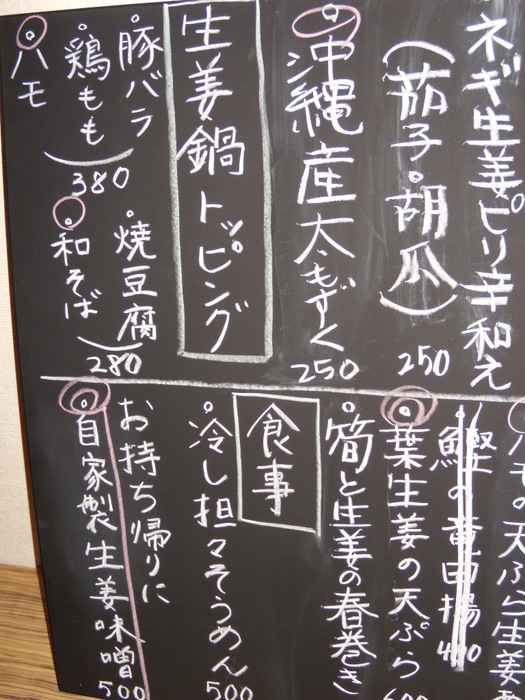 ネギ生姜ピリ辛和え
(茄子・胡瓜) 250
沖縄産太もずく 250
生姜鍋トッピング
・豚バラ
・鶏もも
380
ハモ
・焼豆腐
・和そば
280
ハモの天ぷら生姜
鰹の竜田揚
・葉生姜の天ぷら
・筍と生姜の春巻き
食事
・冷し担々そうめん 500
お持ち帰りに
自家製生姜味噌 500